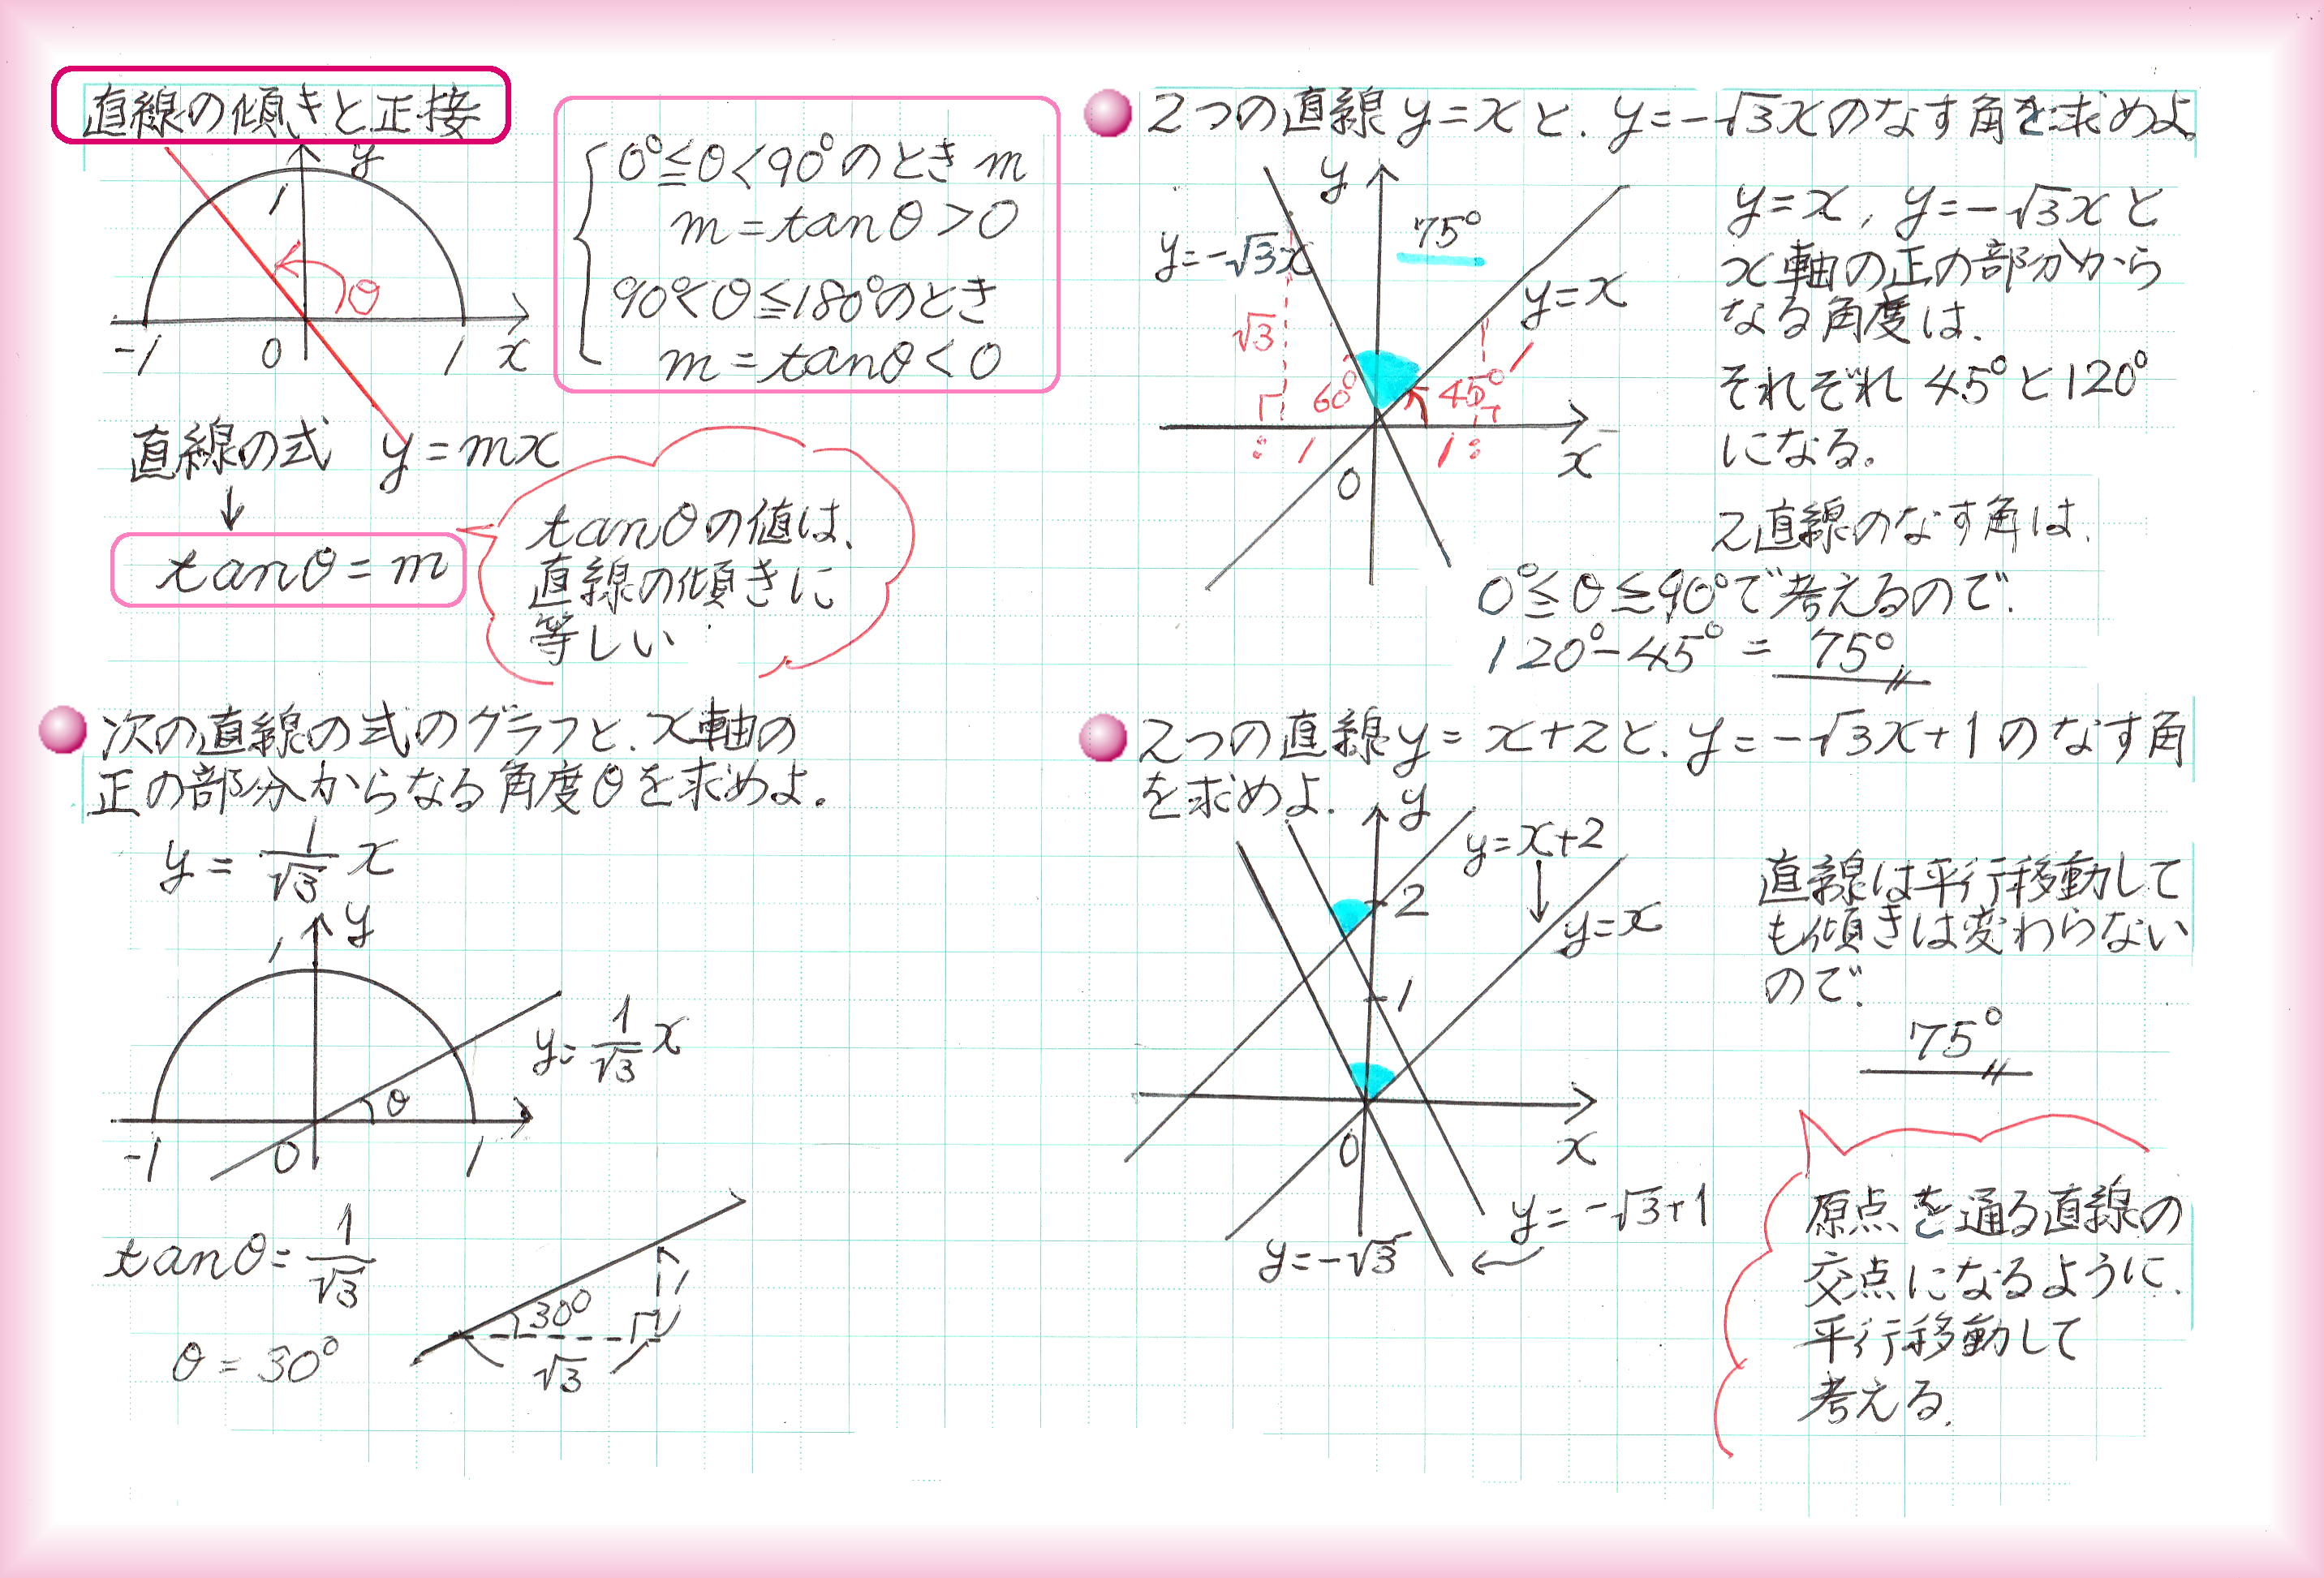 直線の傾きと正接
y
1
θ
-1
0
1
x
0°≦θ<90°のとき m
m=tanθ>0
90°<θ≦180°のとき
m=tanθ<0
直線の式 y=mx
↓
tanθ=m
tanθの値は、
直線の傾きに
等しい
次の直線の式のグラフと、x軸の
正の部分からなる角度θを求めよ。
y=1/√3 x
y
1
y=1/√3 x
θ
-1
0
1
tanθ=1/√3
θ=30°
30°
1
√3
2つの直線y=xと、y=-√3xのなす角を求めよ。
y
75°
y=-√3x
y=x
√3
60°
45°
1
1
1
x
0
y=x, y=-√3xと
x軸の正の部分から
なる角度は、
それぞれ45°と120°
になる。
2直線のなす角は、
0°≦θ≦90°で考えるので、
120°-45°=75°
2つの直線y=x+2と、y=-√3x+1のなす角
を求めよ.
y
y=x+2
2
y=x
1
0
x
y=-√3+1
y=-√3
直線は平行移動して
も傾きは変わらない
ので、
75°
原点を通る直線の
交点になるように、
平行移動して
考える.